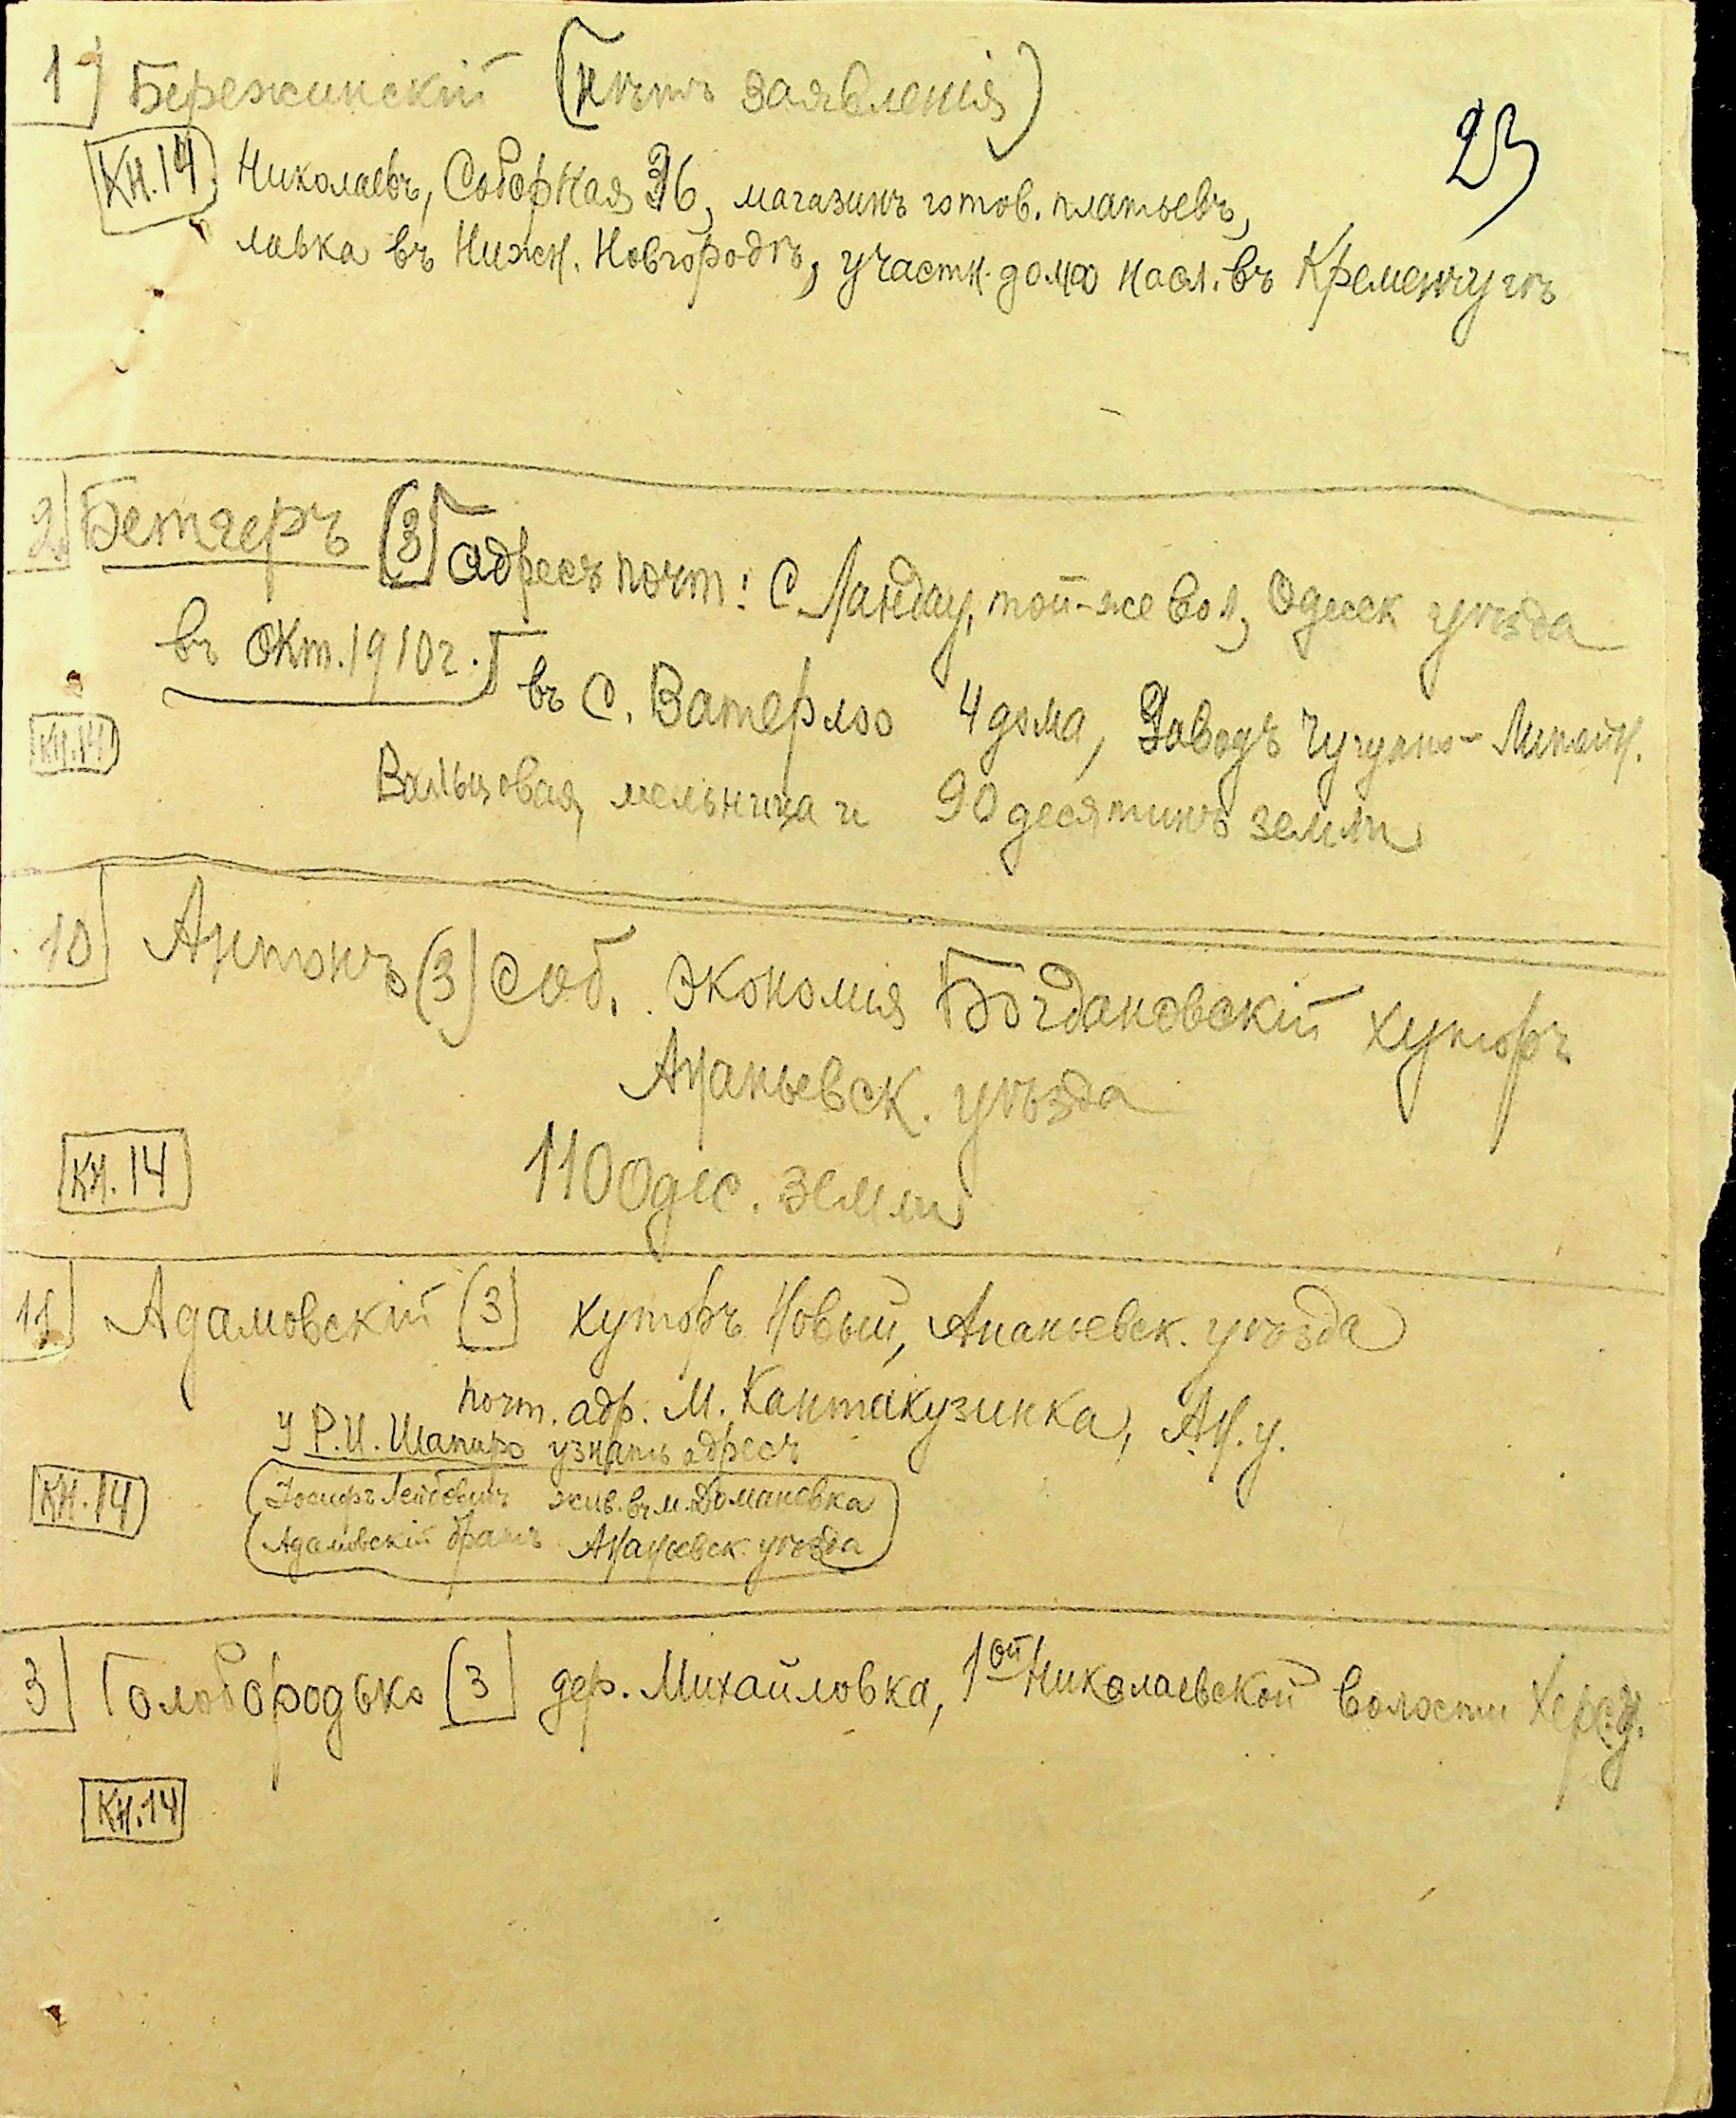 1) Бережинскій (нѣтъ заявленія)
23
Кн. 14 Николаевъ, Соборная 36, магазинъ готов. платьевъ,
лавка въ Нижн. Новгородѣ, участн. дома насл. въ Кременчугѣ
2) Бетчеръ (3) Адресъ почт: С. Ландау, той-же вол, Одесск уѣзда
въ Окт. 1910 г. въ С. Ватерлоо 4 дома, Заводъ Чугуно-Литейн.
Кн. 14
Вальцовая мельница и 90 десятинъ земли
10) Антонъ (3) Соб. экономія Богдановскій хуторъ
Ананьевск. уѣзда
Кн. 14 1100 дес. земли
11) Адамовскій (3) хуторъ Новый, Ананьевск. уѣзда
почт. адр. М. Кантакузинка, Ан. у.
У Р.И. Шапиро узнать адресъ
Кн. 14 Іосифъ Лейбовичъ жив. въ м. Домановка
Адамовскій братъ Ананьевск. уѣзда
3) Голобородько (3) дер. Михайловка, 1ой Николаевской волости Херс. у.
Кн. 14